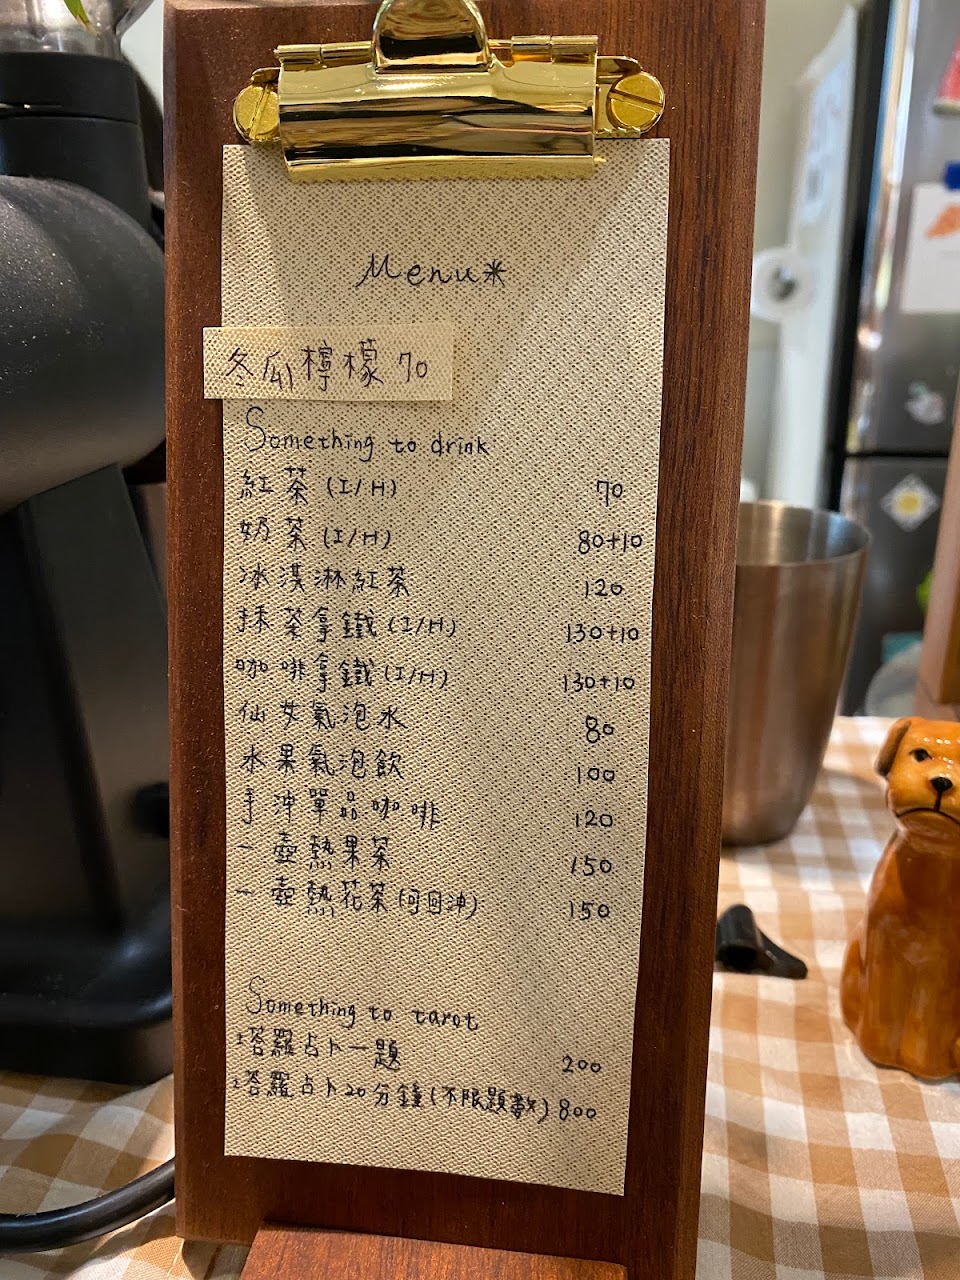 Menu*
冬瓜檸檬 70
Something to drink
紅茶 (I/H) 70
奶茶 (I/H) 80+10
冰淇淋紅茶 120
抹茶拿鐵 (I/H) 130+10
咖啡拿鐵 (I/H) 130+10
仙女氣泡水 80
水果氣泡飲 100
手沖單品咖啡 120
一壺熱果茶 150
一壺熱花茶 (可回沖) 150
Something to tarot
塔羅占卜一題 200
塔羅占卜20分鐘 (不限題數) 800